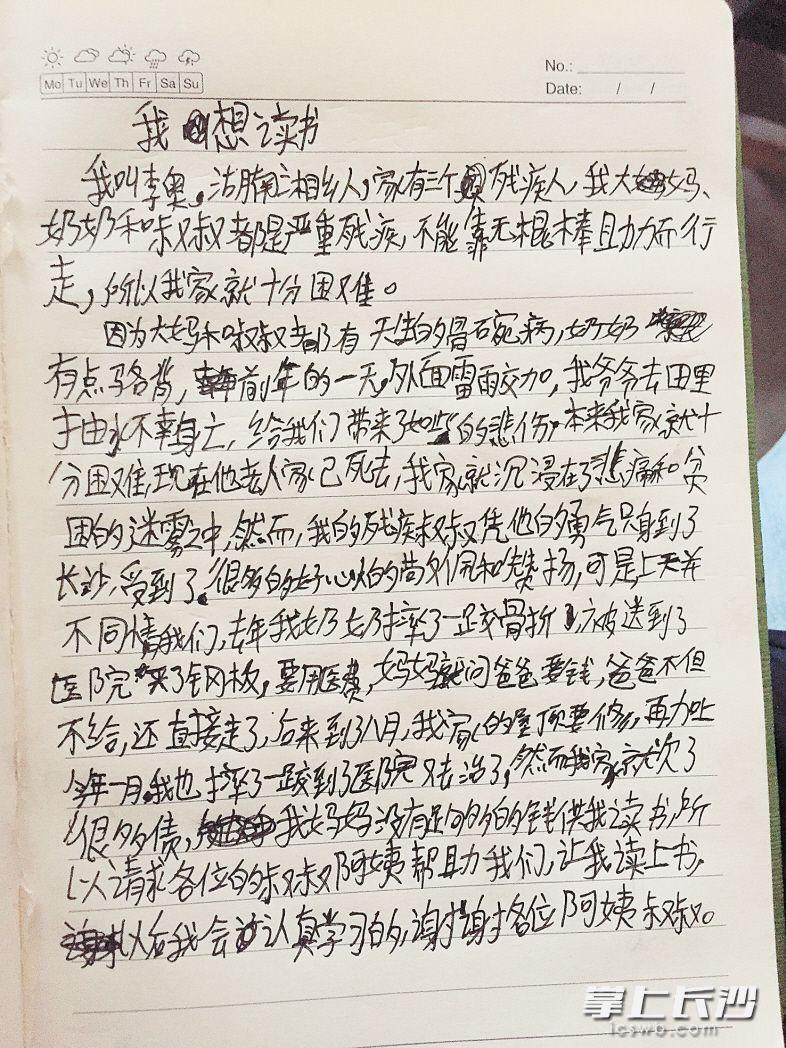 Mo Tu We Th Fr Sa Su
No.:
Date: / /
我想读书
我叫李奥。湖南湘乡人,家有三个残疾人,我大妈、
奶奶和叔叔都是严重残疾,不能靠无棍棒助力而行
走,所以我家就十分困难。
因为大妈和叔叔都有天生的骨碗病,奶奶
有点骆背,前年的一天,外面雷雨交加,我爷爷去田里
抽水不幸身亡,给我们带来了如此的悲伤,本来我家就十
分困难,现在他老人家已死去,我家就沉浸在了悲痛和贫
困的迷雾之中,然而,我的残疾叔叔凭他的勇气只身到了
长沙,受到了很多的好心人的夸佩和赞扬,可是上天并
不同情我们,去年我奶奶摔了一跤骨折,被送到了
医院买了钢板,要用医费,妈妈就问爸爸要钱,爸爸不但
不给,还直接走了,后来到了八月,我家的屋顶要修,再加上
今年一月我也摔了一跤到了医院又去治了,然而我家就欠了
很多债,我妈妈没有足够的钱供我读书,所
以请求各位的叔叔阿姨帮助我们,让我读上书,
以后我会认真学习的,谢谢各位阿姨叔叔。
掌上长沙
icswb.com